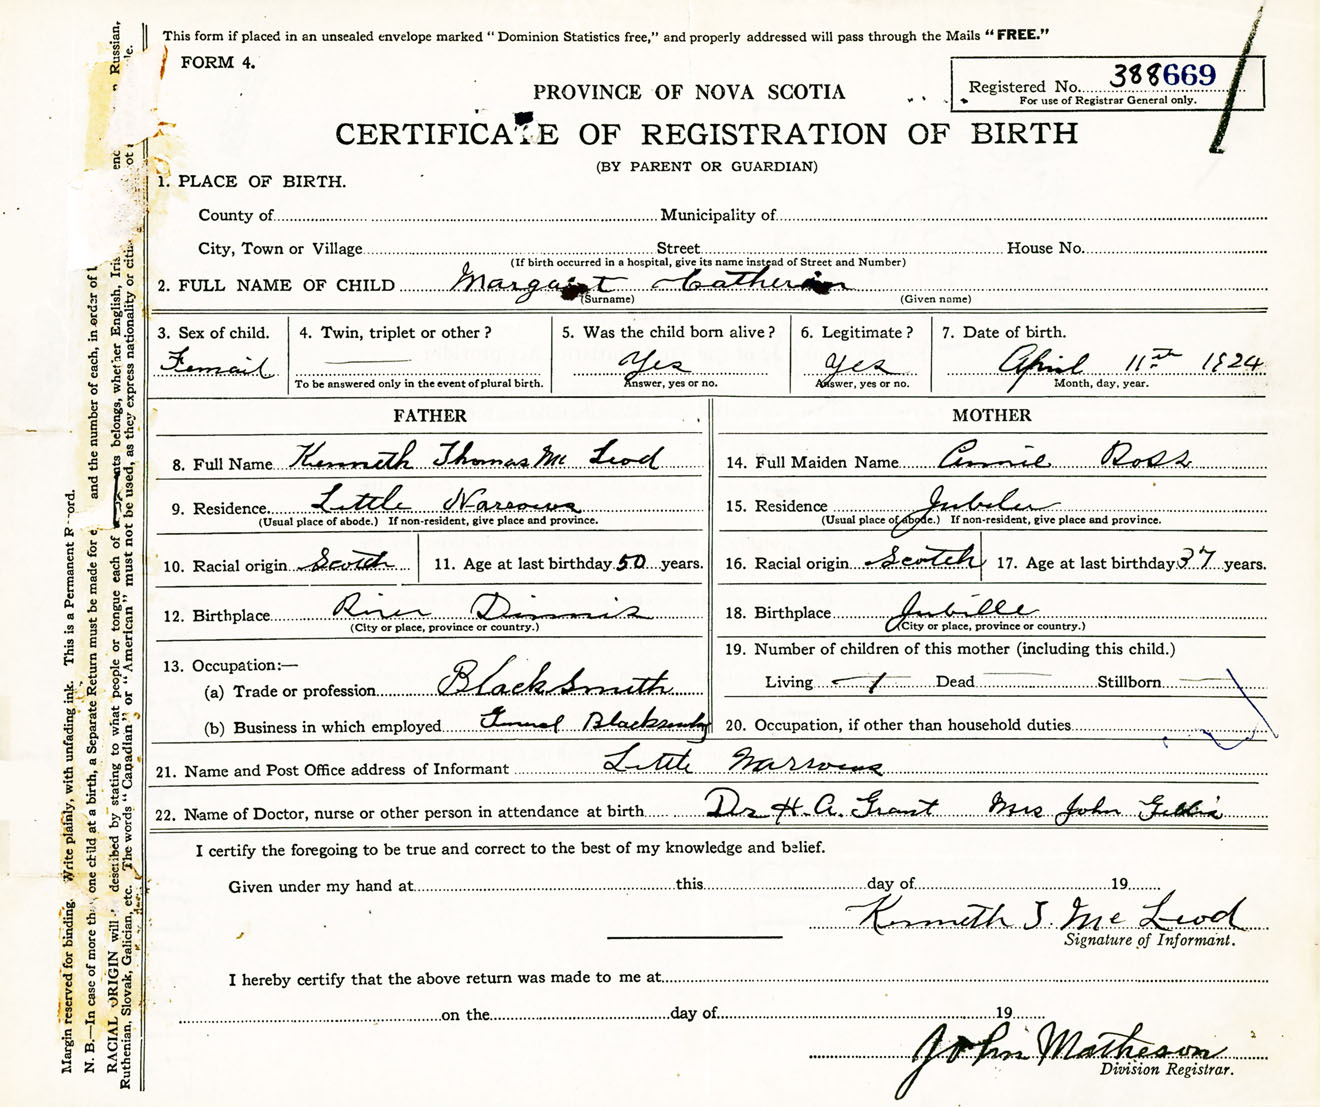 This form if placed in an unsealed envelope marked "Dominion Statistics free," and properly addressed will pass through the Mails "FREE."
FORM 4.
Registered No. 388669
For use of Registrar General only.
PROVINCE OF NOVA SCOTIA
CERTIFICATE OF REGISTRATION OF BIRTH
(BY PARENT OR GUARDIAN)
1. PLACE OF BIRTH.
County of Municipality of
City, Town or Village Street House No.
(If birth occurred in a hospital, give its name instead of Street and Number)
2. FULL NAME OF CHILD Margaret Catherin
(Surname) (Given name)
3. Sex of child. 4. Twin, triplet or other? 5. Was the child born alive? 6. Legitimate? 7. Date of birth.
Femail Yes Yes April 11th 1924
To be answered only in the event of plural birth. Answer, yes or no. Answer, yes or no. Month, day, year.
FATHER MOTHER
8. Full Name Kenneth Thomas Mc Leod 14. Full Maiden Name Annie Ross
9. Residence Little Narrows 15. Residence Jubilee
(Usual place of abode.) If non-resident, give place and province. (Usual place of abode.) If non-resident, give place and province.
10. Racial origin Scotch 11. Age at last birthday 50 years. 16. Racial origin Scotch 17. Age at last birthday 37 years.
12. Birthplace River Dinnis 18. Birthplace Jubille
(City or place, province or country.) (City or place, province or country.)
13. Occupation:— 19. Number of children of this mother (including this child.)
(a) Trade or profession Black Smith Living 1 Dead Stillborn
(b) Business in which employed General Blacksmith 20. Occupation, if other than household duties
21. Name and Post Office address of Informant Little Narrows
22. Name of Doctor, nurse or other person in attendance at birth Dr H. A. Grant Mrs John Gillis
I certify the foregoing to be true and correct to the best of my knowledge and belief.
Given under my hand at this day of 19
Kenneth T. Mc Leod
Signature of Informant.
I hereby certify that the above return was made to me at
on the day of 19
John Matheson
Division Registrar.
Margin reserved for binding. Write plainly, with unfading ink. This is a Permanent Record.
N. B.—In case of more than one child at a birth, a Separate Return must be made for e and the number of each, in order of
RACIAL ORIGIN will described by stating to what people or tongue each of belongs, whether English, Iris Russian,
Ruthenian, Slovak, Galician, etc. The words "Canadian" or "American" must not be used, as they express nationality or citi